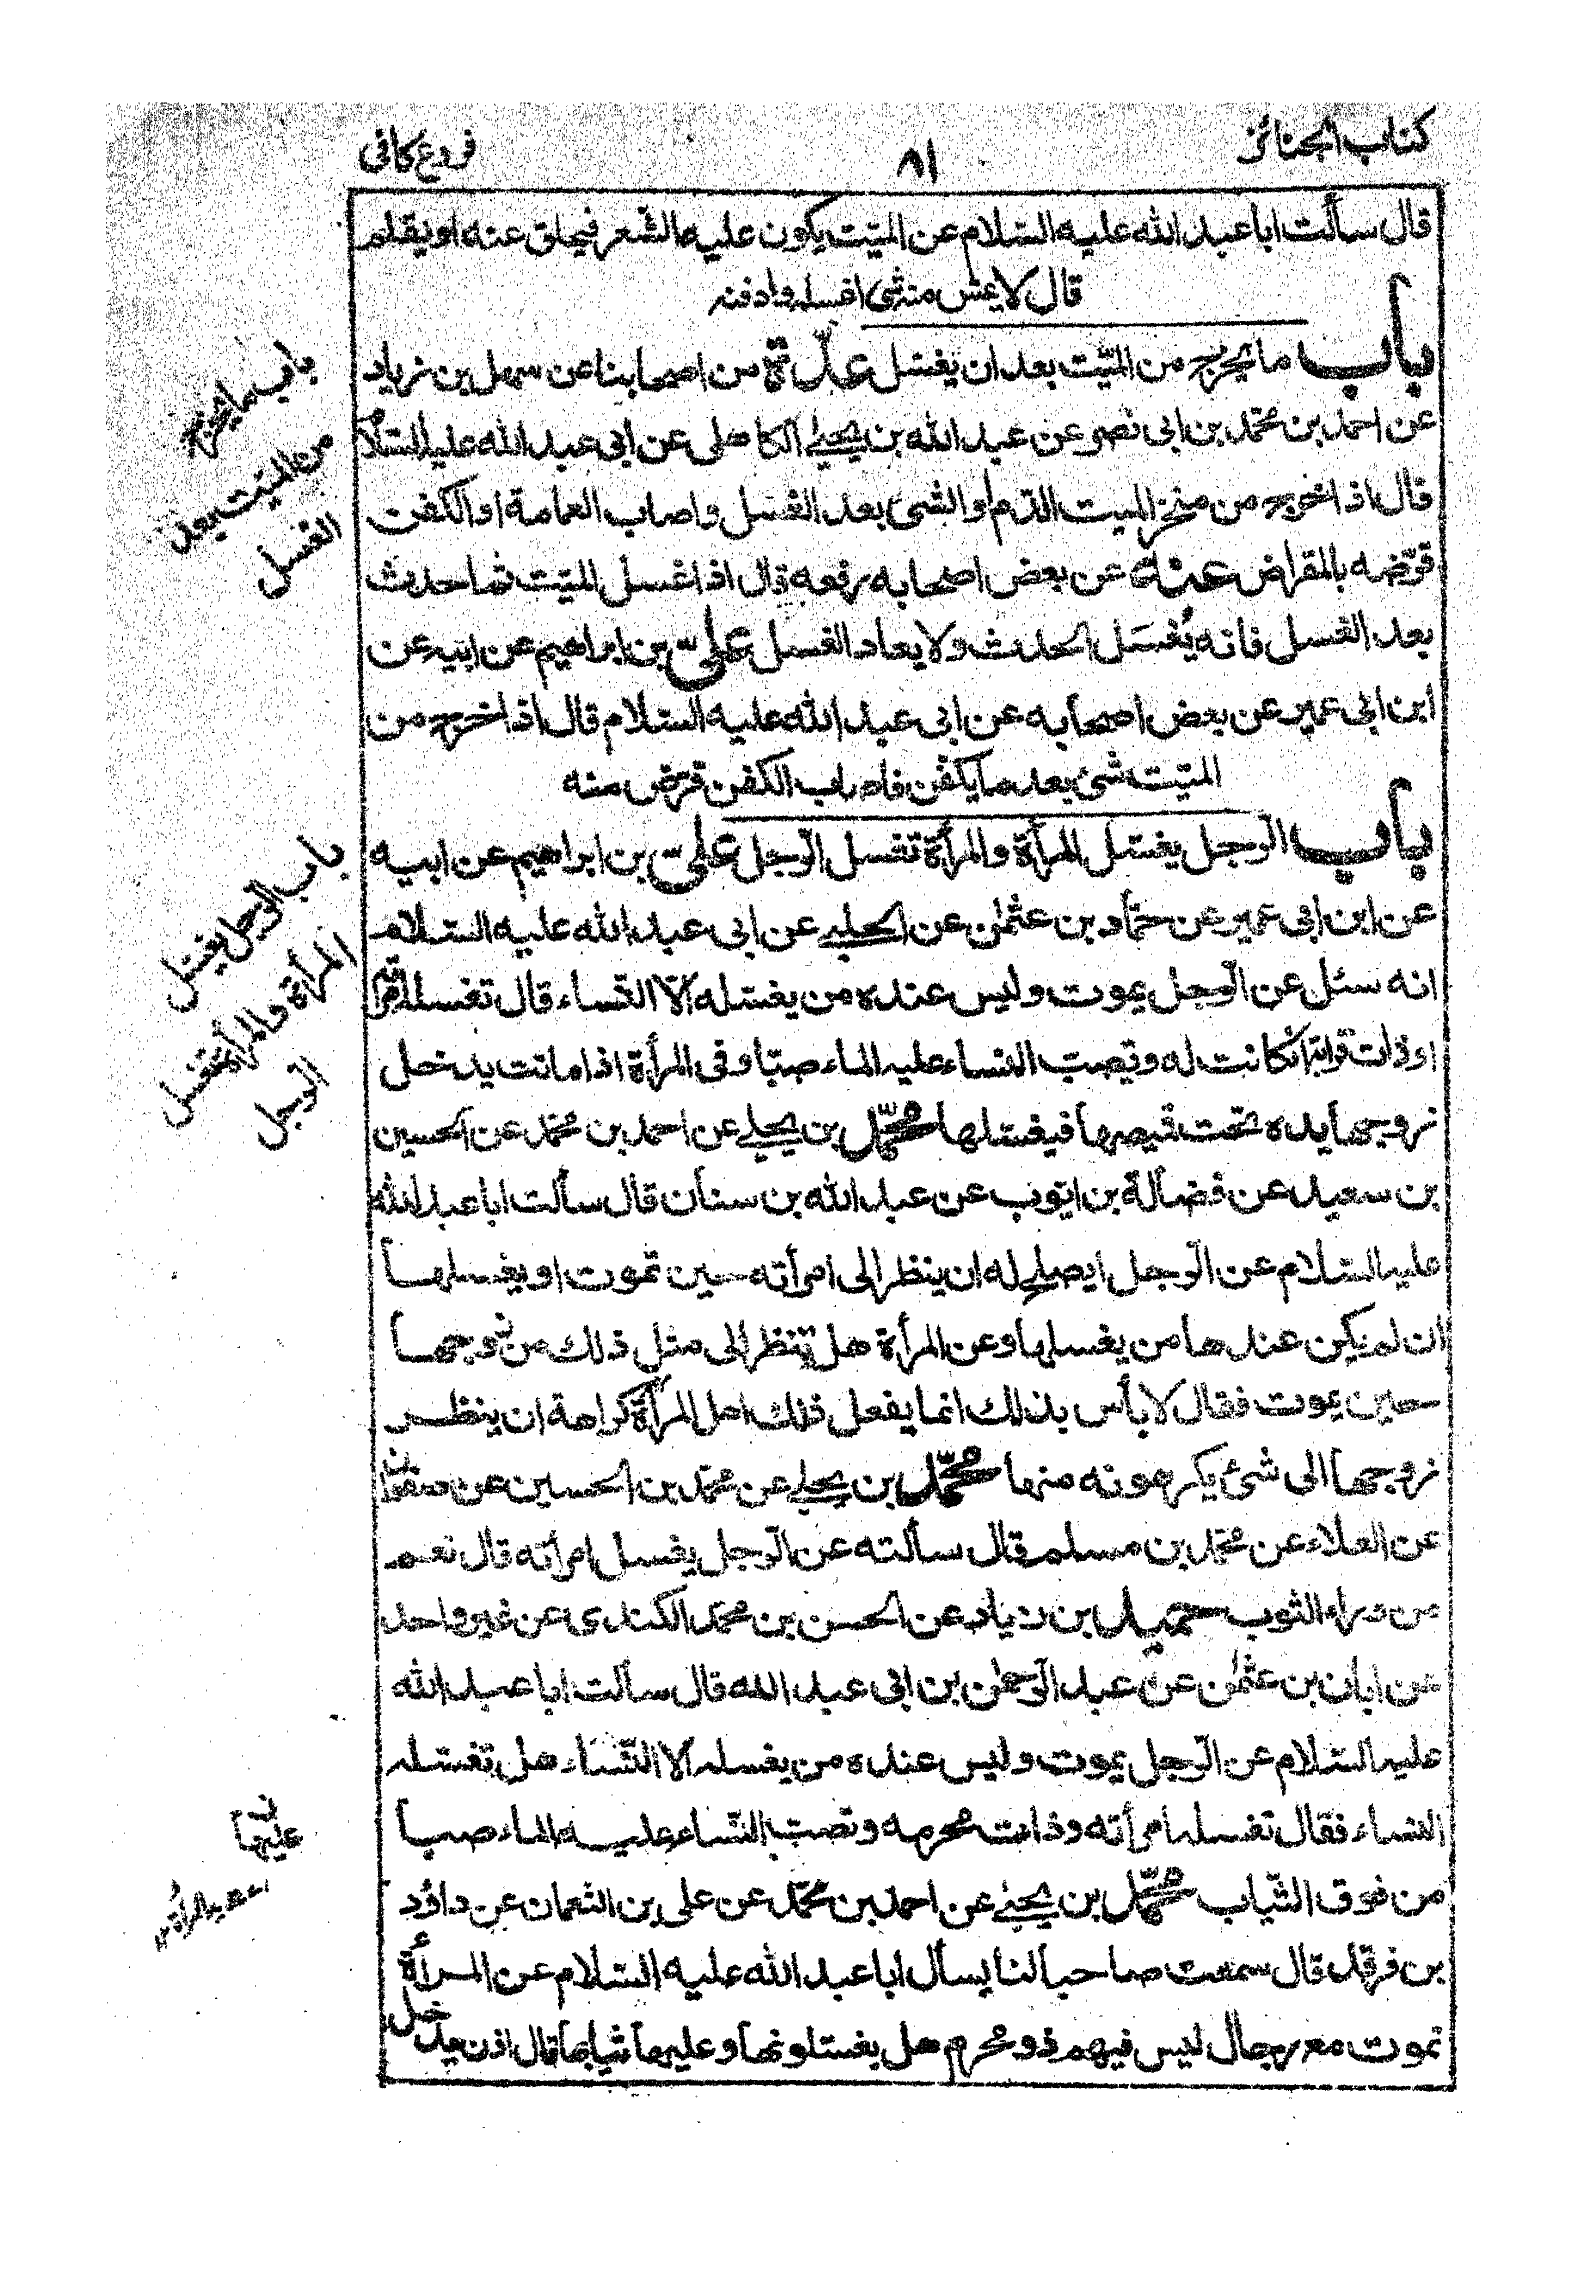 كتاب الجنائز
٨١
فروع كافى
قال سألت ابا عبد الله عليه السّلام عن الميّت يكون عليه الشّعر فيحلق عنه او يقلم
قال لا يمسّ منه شئ اغسله وادفنه
باب ما يخرج من الميّت بعد ان يغسّل عدّة من اصحابنا عن سهل بن زياد
عن احمد بن محمّد بن ابى نصر عن عبد الله بن يحيى الكاهلى عن ابى عبد الله عليه السّلام
قال اذا خرج من منخر الميت الدّم او الشئ بعد الغسل واصاب العمامة او الكفن
قرّضه بالمقراض عنه عن بعض اصحابه رفعه قال اذا غسل الميّت ثم احدث
بعد الغسل فانه يُغسَل الحدث ولا يعاد الغسل علىّ بن ابراهيم عن ابيه عن
ابن ابى عمير عن بعض اصحابه عن ابى عبد الله عليه السّلام قال اذا خرج من
الميّت شئ بعد ما يكفّن فاصاب الكفن قرّض منه
باب الرّجل يغسّل المرأة والمرأة تغسل الرّجل علىّ بن ابراهيم عن ابيه
عن ابن ابى عمير عن حمّاد بن عثمٰن عن الحلبى عن ابى عبد الله عليه السّلام
انه سئل عن الرّجل يموت وليس عنده من يغسّله الّا النّساء قال تغسله امرأته
او ذات قرابة انكانت له وتصبّ النّساء عليه الماء صبّا وفى المرأة اذا ماتت يدخل
زوجها يده تحت قيصها فيغسّلها محمّد بن يحيى عن احمد بن محمّد عن الحسين
بن سعيد عن فضالة بن ايّوب عن عبد الله بن سنان قال سألت ابا عبد الله
عليه السّلام عن الرّجل ايصلح له ان ينظر الى امرأته حين تموت او يغسلها
ان لم يكن عندها من يغسلها وعن المرأة هل تنظر الى مثل ذلك من زوجها
حين يموت فقال لا بأس بذلك انما يفعل ذلك اهل المرأة كراهة ان ينظر
زوجها الى شئ يكرهونه منها محمّد بن يحيى عن محمّد بن الحسين عن صفوان
عن العلاء عن محمّد بن مسلم قال سألته عن الرّجل يغسل امرأته قال نعم
من وراء الثوب حميد بن زياد عن الحسن بن محمّد الكندى عن غير واحد
عن ابان بن عثمٰن عن عبد الرّحمٰن بن ابى عبد الله قال سألت ابا عبد الله
عليه السّلام عن الرّجل يموت وليس عنده من يغسله الا النّساء هل تغسّله
النساء فقال تغسله امرأته وذات محرمه وتصبّ النّساء عليه الماء صبا
من فوق الثّياب محمّد بن يحيى عن احمد بن محمّد عن على بن النّعمان عن داؤد
بن فرقد قال سمعت صاحبا لنا يسأل ابا عبد الله عليه السّلام عن المرأة
تموت مع رجال ليس فيهم ذو محرم هل يغسّلونها وعليها ثيابها قال اذن يدخل
باب ما يخرج
من الميّت بعد
الغسل
باب الرّجل يغسّل
المرأة والمرأة تغسل
الرجل
عليها